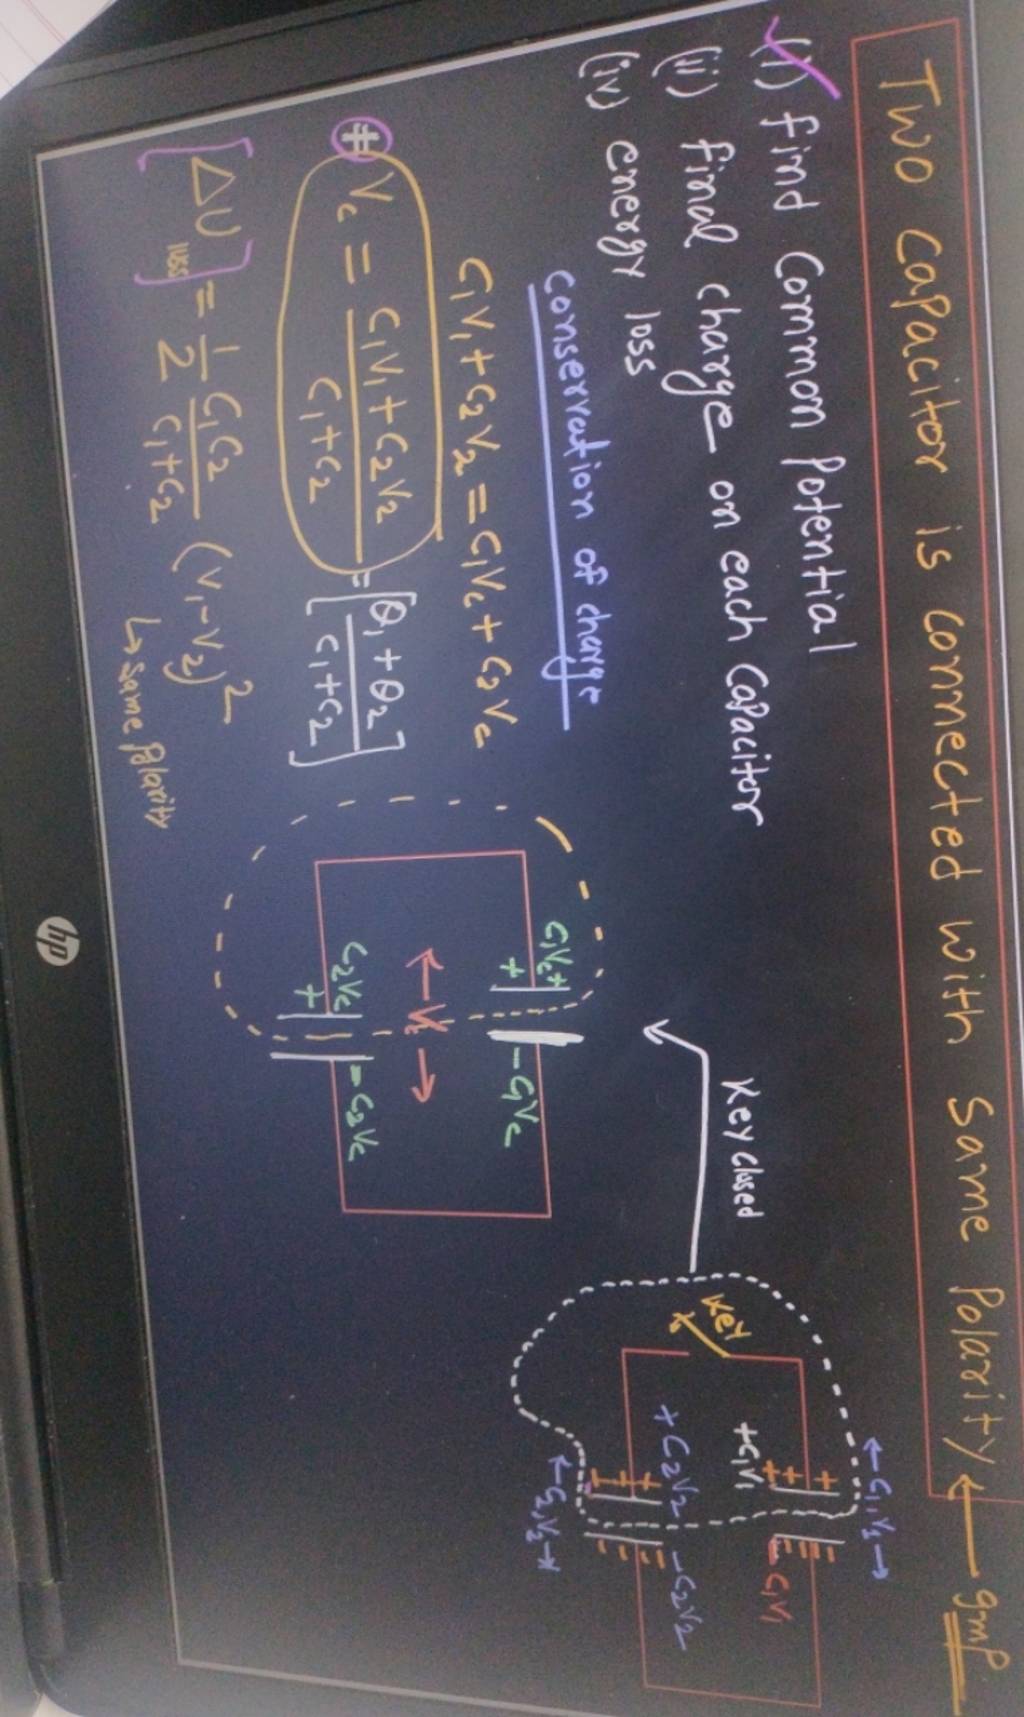 Two capacitor is connected with same polarity ← gmp
(i) find common potential
(ii) final charge on each capacitor
(iv) energy loss
conservation of charge
C₁V₁ + C₂V₂ = C₁Vc + C₂Vc
# Vc = (C₁V₁ + C₂V₂) / (C₁ + C₂) = [(Q₁ + Q₂) / (C₁ + C₂)]
[ΔU]loss = 1/2 C₁C₂ / (C₁ + C₂) (V₁ - V₂)²
↳ same polarity
← C₁, V₁ →
+C₁V₁ - C₁V₁
key
+C₂V₂ - C₂V₂
← C₂, V₂ →
key closed
C₁Vc + - C₁Vc
← Vc →
C₂Vc + - C₂Vc
hp